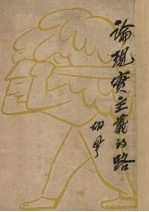 論現實主義的路
胡風